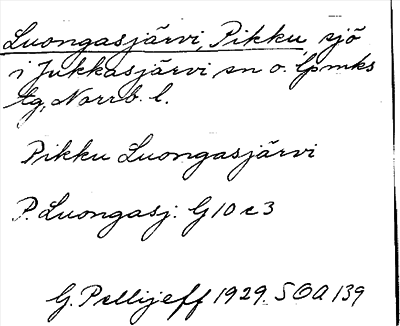 Luongasjärvi, Pikku, sjö
i Jukkasjärvi sn o. lpmks
tg, Norrb. l.
Pikku Luongasjärvi
P. Luongasj. G 10 c 3
G. Pellijeff 1929. SOA 139